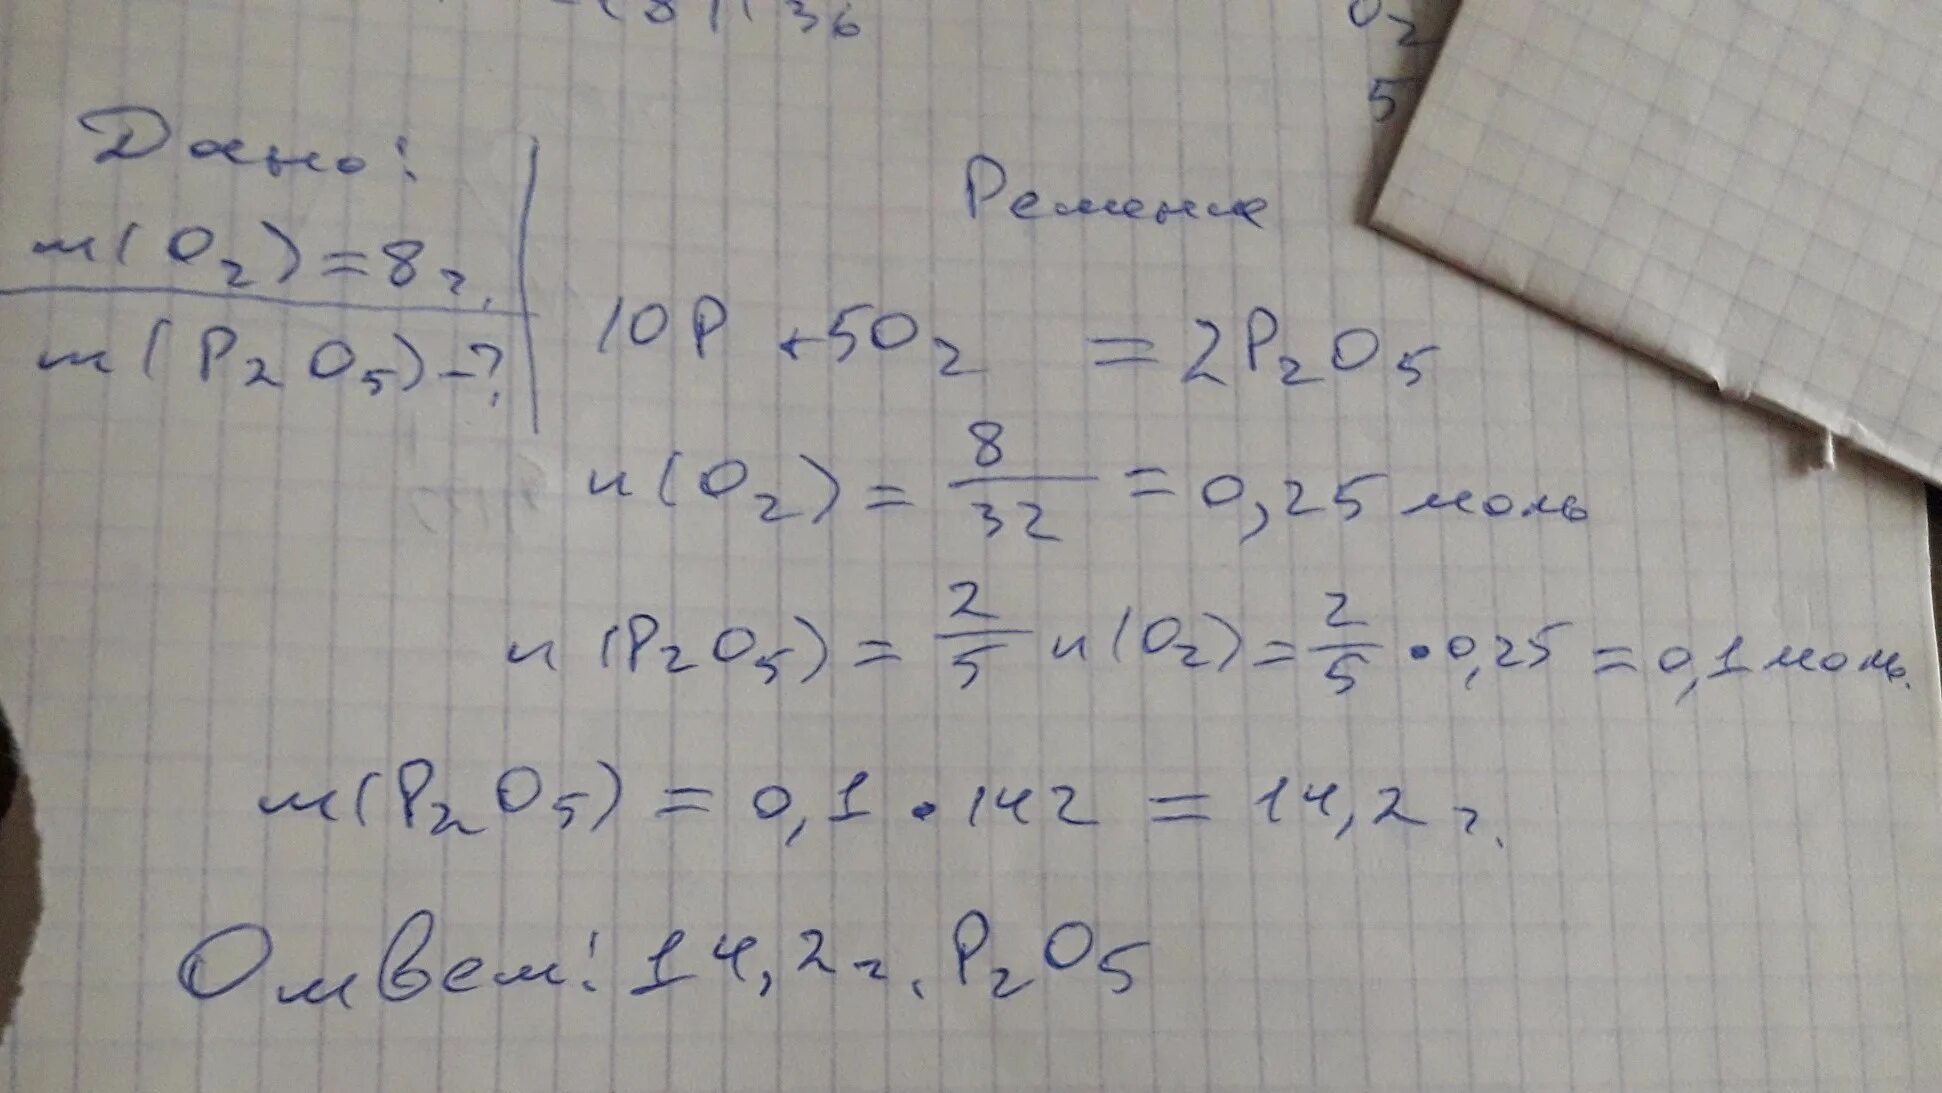 36
O₂
5
Дано:
m(O₂) = 8 г.
m(P₂O₅) - ?
Решение
10P + 5O₂ = 2P₂O₅
n(O₂) = 8/32 = 0,25 моль
n(P₂O₅) = 2/5 n(O₂) = 2/5 • 0,25 = 0,1 моль.
m(P₂O₅) = 0,1 • 142 = 14,2 г.
Ответ: 14,2 г. P₂O₅